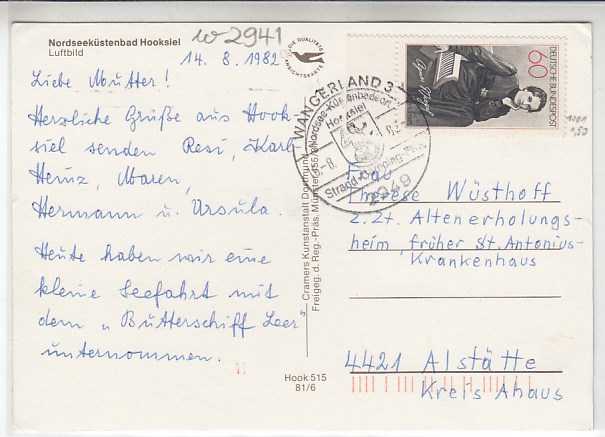 w-2941
Nordseeküstenbad Hooksiel
Luftbild
14.8.1982
DIE QUALITÄTS
ANSICHTSKARTE
Liebe Mutter!
Herzliche Grüße aus Hook-
siel senden Resi, Karl-
Heinz, Maren,
Hermann u. Ursula.
Heute haben wir eine
kleine Seefahrt mit
dem „Butterschiff Leer"
unternommen.
Cramers Kunstanstalt Dortmund
Freigeg. d. Reg.-Präs. Münster
Hook 515
81/6
DEUTSCHE BUNDESPOST
60
WANGERLAND 3
Nordsee-Küstenbadeort
Hooksiel
Strand
Camping
2949
Frau
Therese Wüsthoff
z.Zt. Altenerholungs-
heim, früher St. Antonius-
Krankenhaus
4421 Alstätte
Kreis Ahaus